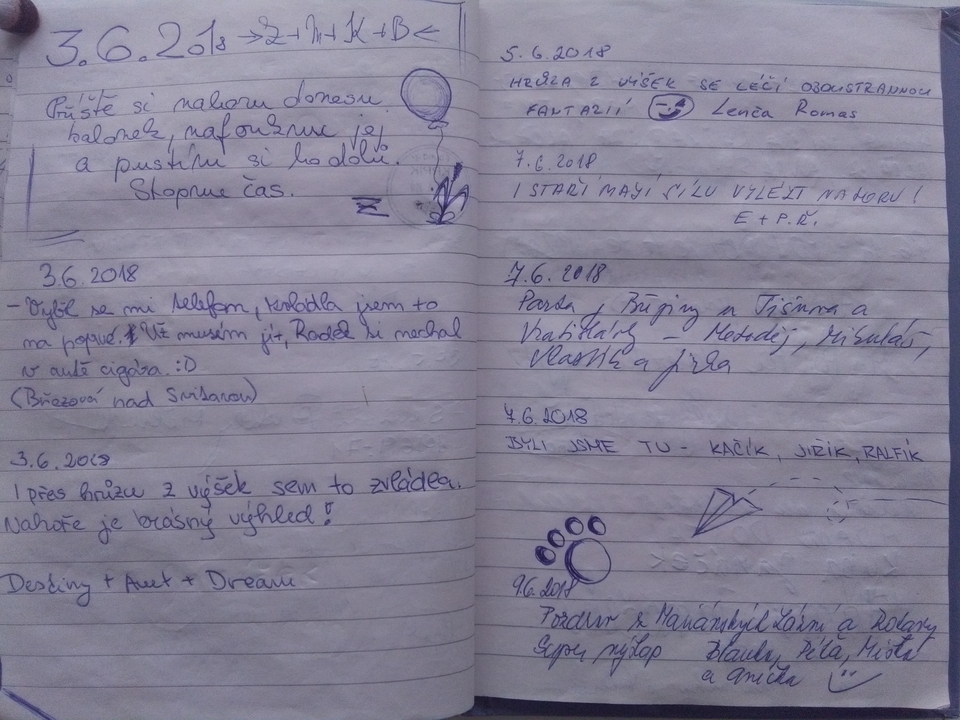 3.6.2018 → Z+M+K+B ←
Příště si nahoru donesu
balonek, nafouknu jej
a pustím si ho dolu.
Stopnu čas.
3.6.2018
- Vybil se mi telefon, zvládla jsem to
na poprvé. Už musím jít, Radek si nechal
v autě cigára. :D
(Březová nad Svitavou)
3.6.2018
I přes hrůzu z výšek sem to zvládla.
Nahoře je krásný výhled!
Destiny + Amt + Dream
5.6.2018
HRŮZA Z VÝŠEK SE LÉČÍ OBOUSTRANNOU
FANTAZIÍ Lenča Romas
7.6.2018
I STAŘÍ MAJÍ SÍLU VYLÉZT NAHORU!
E + P.Ř.
7.6.2018
Parta, Bůjiny u Tišnova a
Vratislávky - Metoděj, Mikuláš,
Vlastík a Jirka
7.6.2018
BYLI JSME TU - KAČÍK, JIŘÍK, RALFÍK
9.6.2018
Pozdrav z Mariánských Lázní a Rolavy
Super výšlap Blanka, Péťa, Míša
a Anička